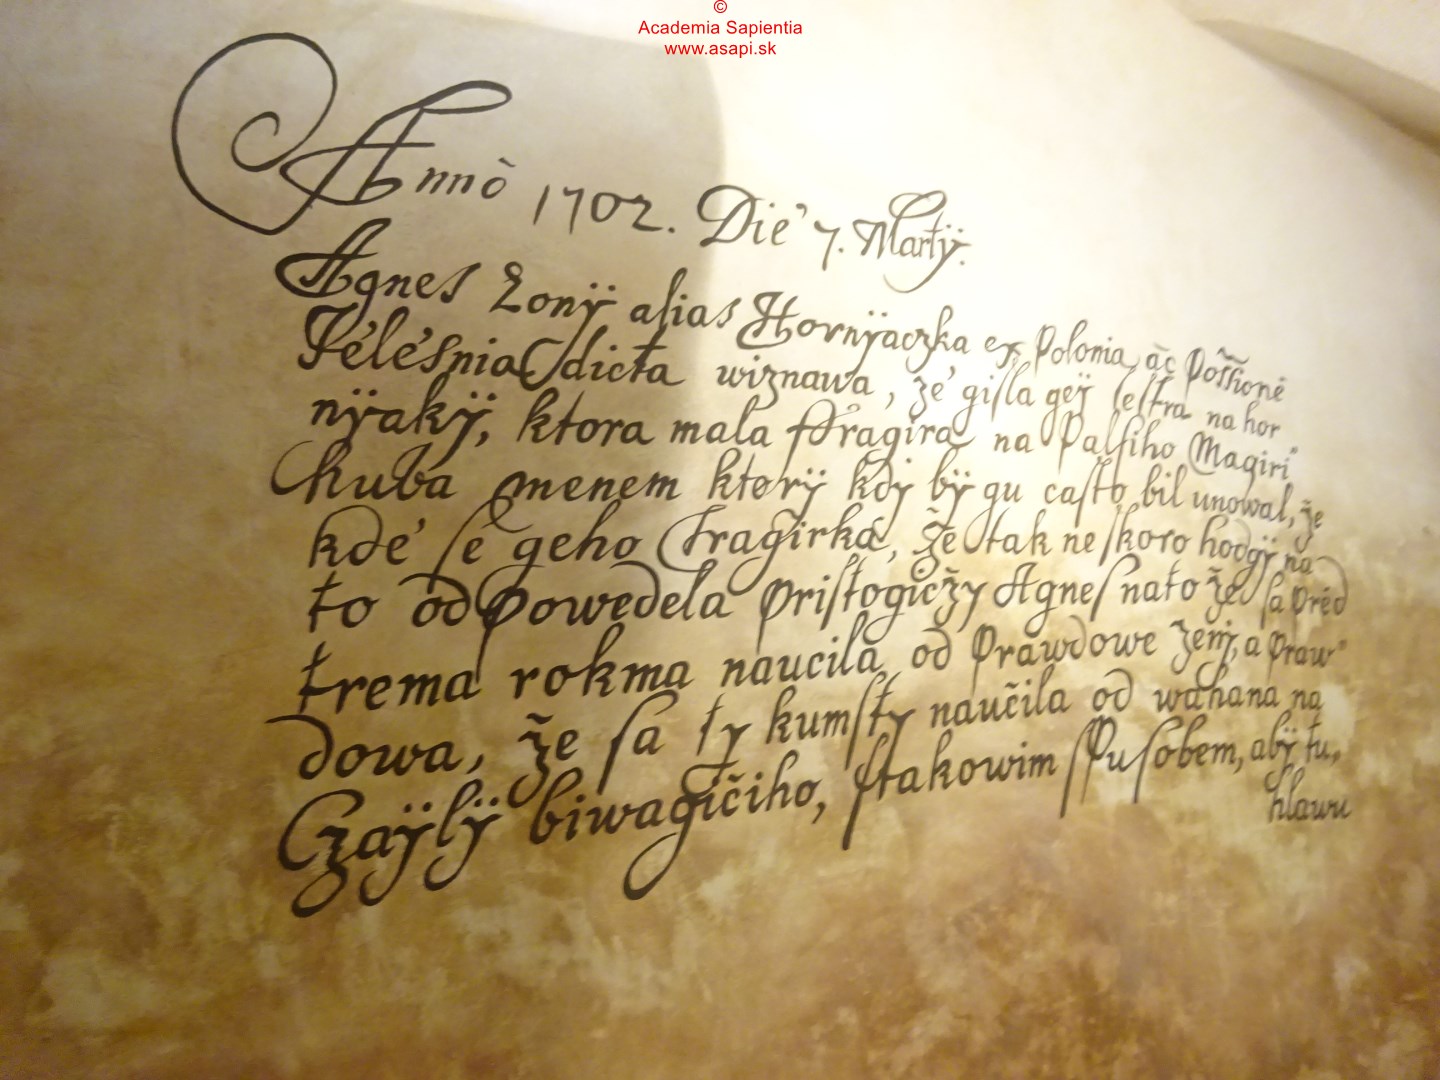 ©
Academia Sapientia
www.asapi.sk
Annò 1702. Die 7. Martÿ.
Agnes Zonÿ alias Hornÿaczka ex Polonia, ac
Télésnia dicta wiznawa, že gisla geÿ sestra na hor
nÿakÿ, ktora mala Fragira na Palsiho Magiri
Kuba menem ktorÿ kdy bÿ gu casto bil unowal, že
kdé se geho Fragirka, že tak ne skoro hodgÿ na
to odpowedela pristogičzy Agnes na to že sa pred
trema rokma naucila od Prawdowe ženi, a praw
dowa, že sa ty kumsty naučila od wahana na
Czaÿlÿ biwagičiho, stakowim spusobem, abÿ tu,
hlawu